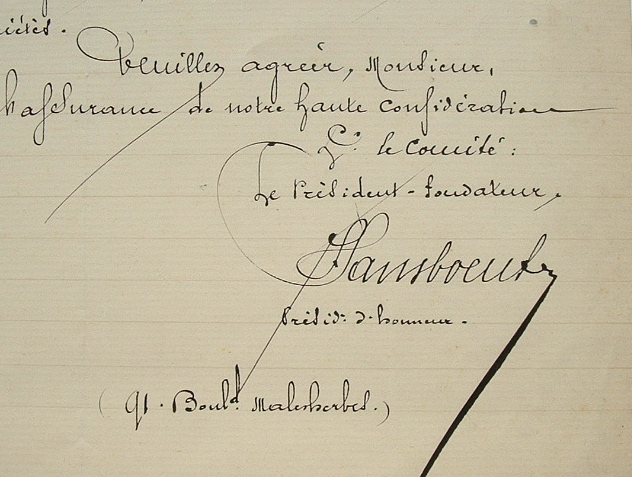 iétés.
Veuillez agréer, Monsieur,
l'assurance de notre haute considération
P. le Comité :
Le Président-fondateur,
Sansboeuf
Présidt. d'honneur.
(91. Bould. Malesherbes.)